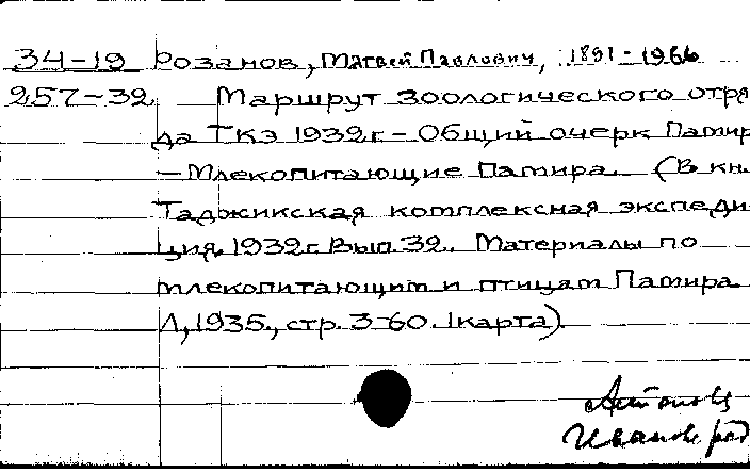 34-19 Розанов, Матвей Павлович, 1891-1966
257-32 Маршрут зоологического отря
да ТКЭ 1932 г. - Общий очерк Памир
- Млекопитающие Памира. (В кн.
Таджикская комплексная экспеди
ция 1932 г. Вып. 32. Материалы по
млекопитающим и птицам Памира.
Л, 1935, стр. 3-60. 1 карта).